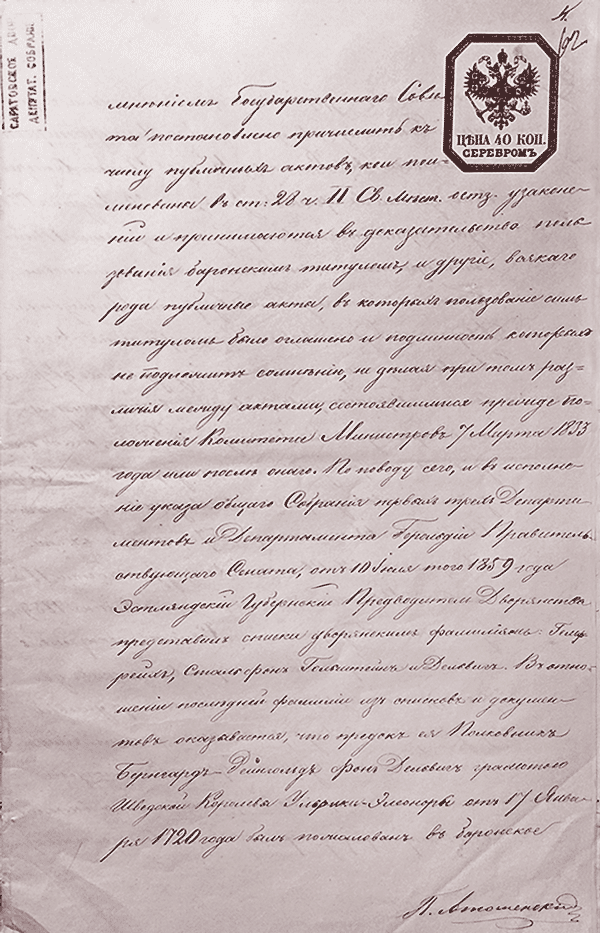 САРАТОВСКОЕ ДВО
ДЕПУТАТ. СОБРАНІ
ЦѢНА 40 КОП.
СЕРЕБРОМЪ
мнѣніемъ Государственнаго Совѣ
та постановлено причислить къ
числу публичныхъ актовъ, кои пои-
менованы въ ст: 28 ч. II Св. мѣст. остз. узаконе-
ній и принимаются въ доказательство поль
зованія баронскимъ титуломъ, и другіе, всякаго
рода публичные акты, въ которыхъ пользованіе симъ
титуломъ было оглашено и подлинность которыхъ
не подлежитъ сомнѣнію, не дѣлая при томъ раз=
личія между актами, состоявшимися прежде По-
ложенія Комитета Министровъ 7 Марта 1833
года или послѣ онаго. По поводу сего, и въ исполне-
ніе указа общаго Собранія первыхъ трехъ Департа
ментовъ и Департамента Герольдіи Правитель-
ствующаго Сената, отъ 10 Іюля того 1859 года
Эстляндскій Губернскій Предводитель Дворянства
представилъ списки дворянскимъ фамиліямъ:
Сталь фонъ Гольштейнъ и Деловигъ. Въ отно-
шеніи послѣдней фамиліи изъ списковъ и докумен-
товъ оказывается, что предокъ ея Полковникъ
Бернгардъ-Рейнгольдъ фонъ Деловигъ грамотою
Шведской Королевы Ульрики-Элеоноры отъ 17 Янва-
ря 1720 года былъ пожалованъ въ баронское